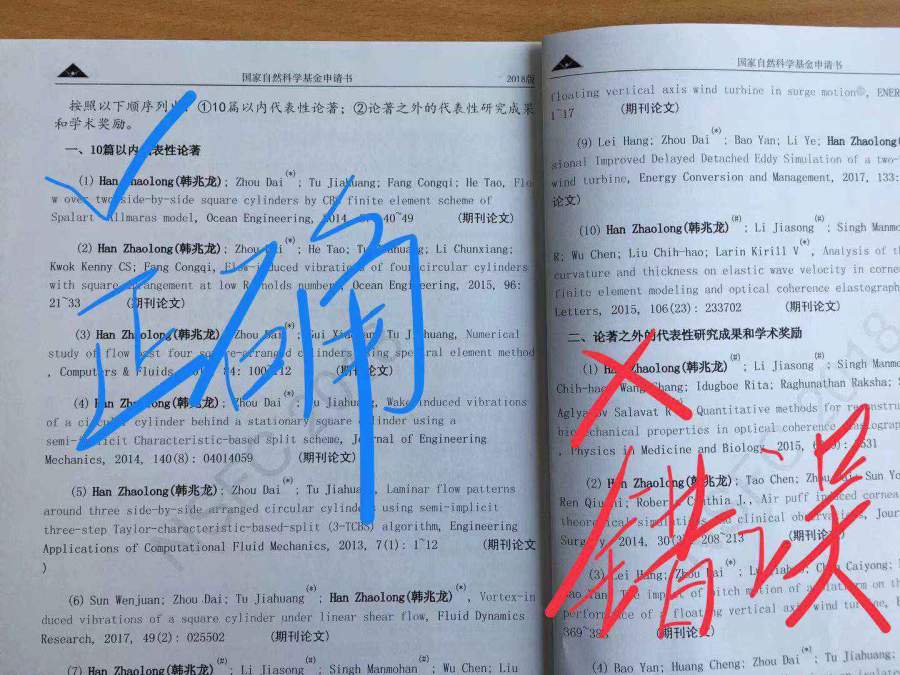 国家自然科学基金申请书
2018版
按照以下顺序列出:①10篇以内代表性论著;②论著之外的代表性研究成果
和学术奖励。
一、10篇以内代表性论著
(1) Han Zhaolong(韩兆龙); Zhou Dai(*); Tu Jiahuang; Fang Congqi; He Tao, Flo
w over two side-by-side square cylinders by CBS finite element scheme of
Spalart Allmaras model, Ocean Engineering, 2014 40~49 (期刊论文)
(2) Han Zhaolong(韩兆龙); Zhou Dai(*); He Tao; Tu Jiahuang; Li Chunxiang;
Kwok Kenny CS; Fang Congqi, Flow-induced vibrations of four circular cylinders
with square arrangement at low Reynolds numbers, Ocean Engineering, 2015, 96:
21~33 (期刊论文)
(3) Han Zhaolong(韩兆龙); Zhou Dai(*); Gui Tu Jiahuang, Numerical
study of flow past four square-arranged cylinders using spectral element method
, Computers & Fluids, 84: 100~112 (期刊论文)
(4) Han Zhaolong(韩兆龙); Zhou Dai(*); Tu Jiahuang, Wake-induced vibrations
of a circular cylinder behind a stationary square cylinder using a
semi-implicit Characteristic-based split scheme, Journal of Engineering
Mechanics, 2014, 140(8): 04014059 (期刊论文)
(5) Han Zhaolong(韩兆龙); Zhou Dai(*); Tu Jiahuang, Laminar flow patterns
around three side-by-side arranged circular cylinders using semi-implicit
three-step Taylor-characteristic-based-split (3-TCBS) algorithm, Engineering
Applications of Computational Fluid Mechanics, 2013, 7(1): 1~12 (期刊论文
)
(6) Sun Wenjuan; Zhou Dai; Tu Jiahuang(*); Han Zhaolong(韩兆龙)(*), Vortex-in
duced vibrations of a square cylinder under linear shear flow, Fluid Dynamics
Research, 2017, 49(2): 025502 (期刊论文)
(7) Han Zhaolong(韩兆龙)(#); Li Jiasong(#); Singh Manmohan(#); Wu Chen; Liu
正确
国家自然科学基金申请书
floating vertical axis wind turbine in surge motion©, ENER
1~17 (期刊论文)
(9) Lei Hang; Zhou Dai(*); Bao Yan; Li Ye; Han Zhaolong
sional Improved Delayed Detached Eddy Simulation of a two-
wind turbine, Energy Conversion and Management, 2017, 133:
论文)
(10) Han Zhaolong(韩兆龙)(#); Li Jiasong(#); Singh Manmo
g; Wu Chen; Liu Chih-hao; Larin Kirill V(*), Analysis of th
curvature and thickness on elastic wave velocity in cornea
finite element modeling and optical coherence elastograph
Letters, 2015, 106(23): 233702 (期刊论文)
二、论著之外的代表性研究成果和学术奖励
(1) Han Zhaolong(韩兆龙)(#); Li Jiasong(#); Singh Manmo
Chih-hao; Wang Shang; Idugboe Rita; Raghunathan Raksha; S
Aglyamov Salavat R Quantitative methods for reconstruc
biomechanical properties in optical coherence elastograp
, Physics in Medicine and Biology, 2015, 3531
(2) Han Zhaolong(韩兆龙)(#); Tao Chen; Zhou Dai; Sun Yo
Ren Qiushi; Roberts Cynthia J., Air puff induced cornea
theoretical simulations and clinical observations, Jour
Surgery, 2014, 30(3): 208~213 (期刊论文)
(3) Lei Hang; Zhou Dai(*); Caiyong;
Bao Yan, The impact of pitch motion of a platform on th
performance of a floating vertical axis wind turbine, E
369~383 (期刊论文)
(4) Bao Yan; Huang Cheng; Zhou Dai(*); Tu Jiahuang;
错误